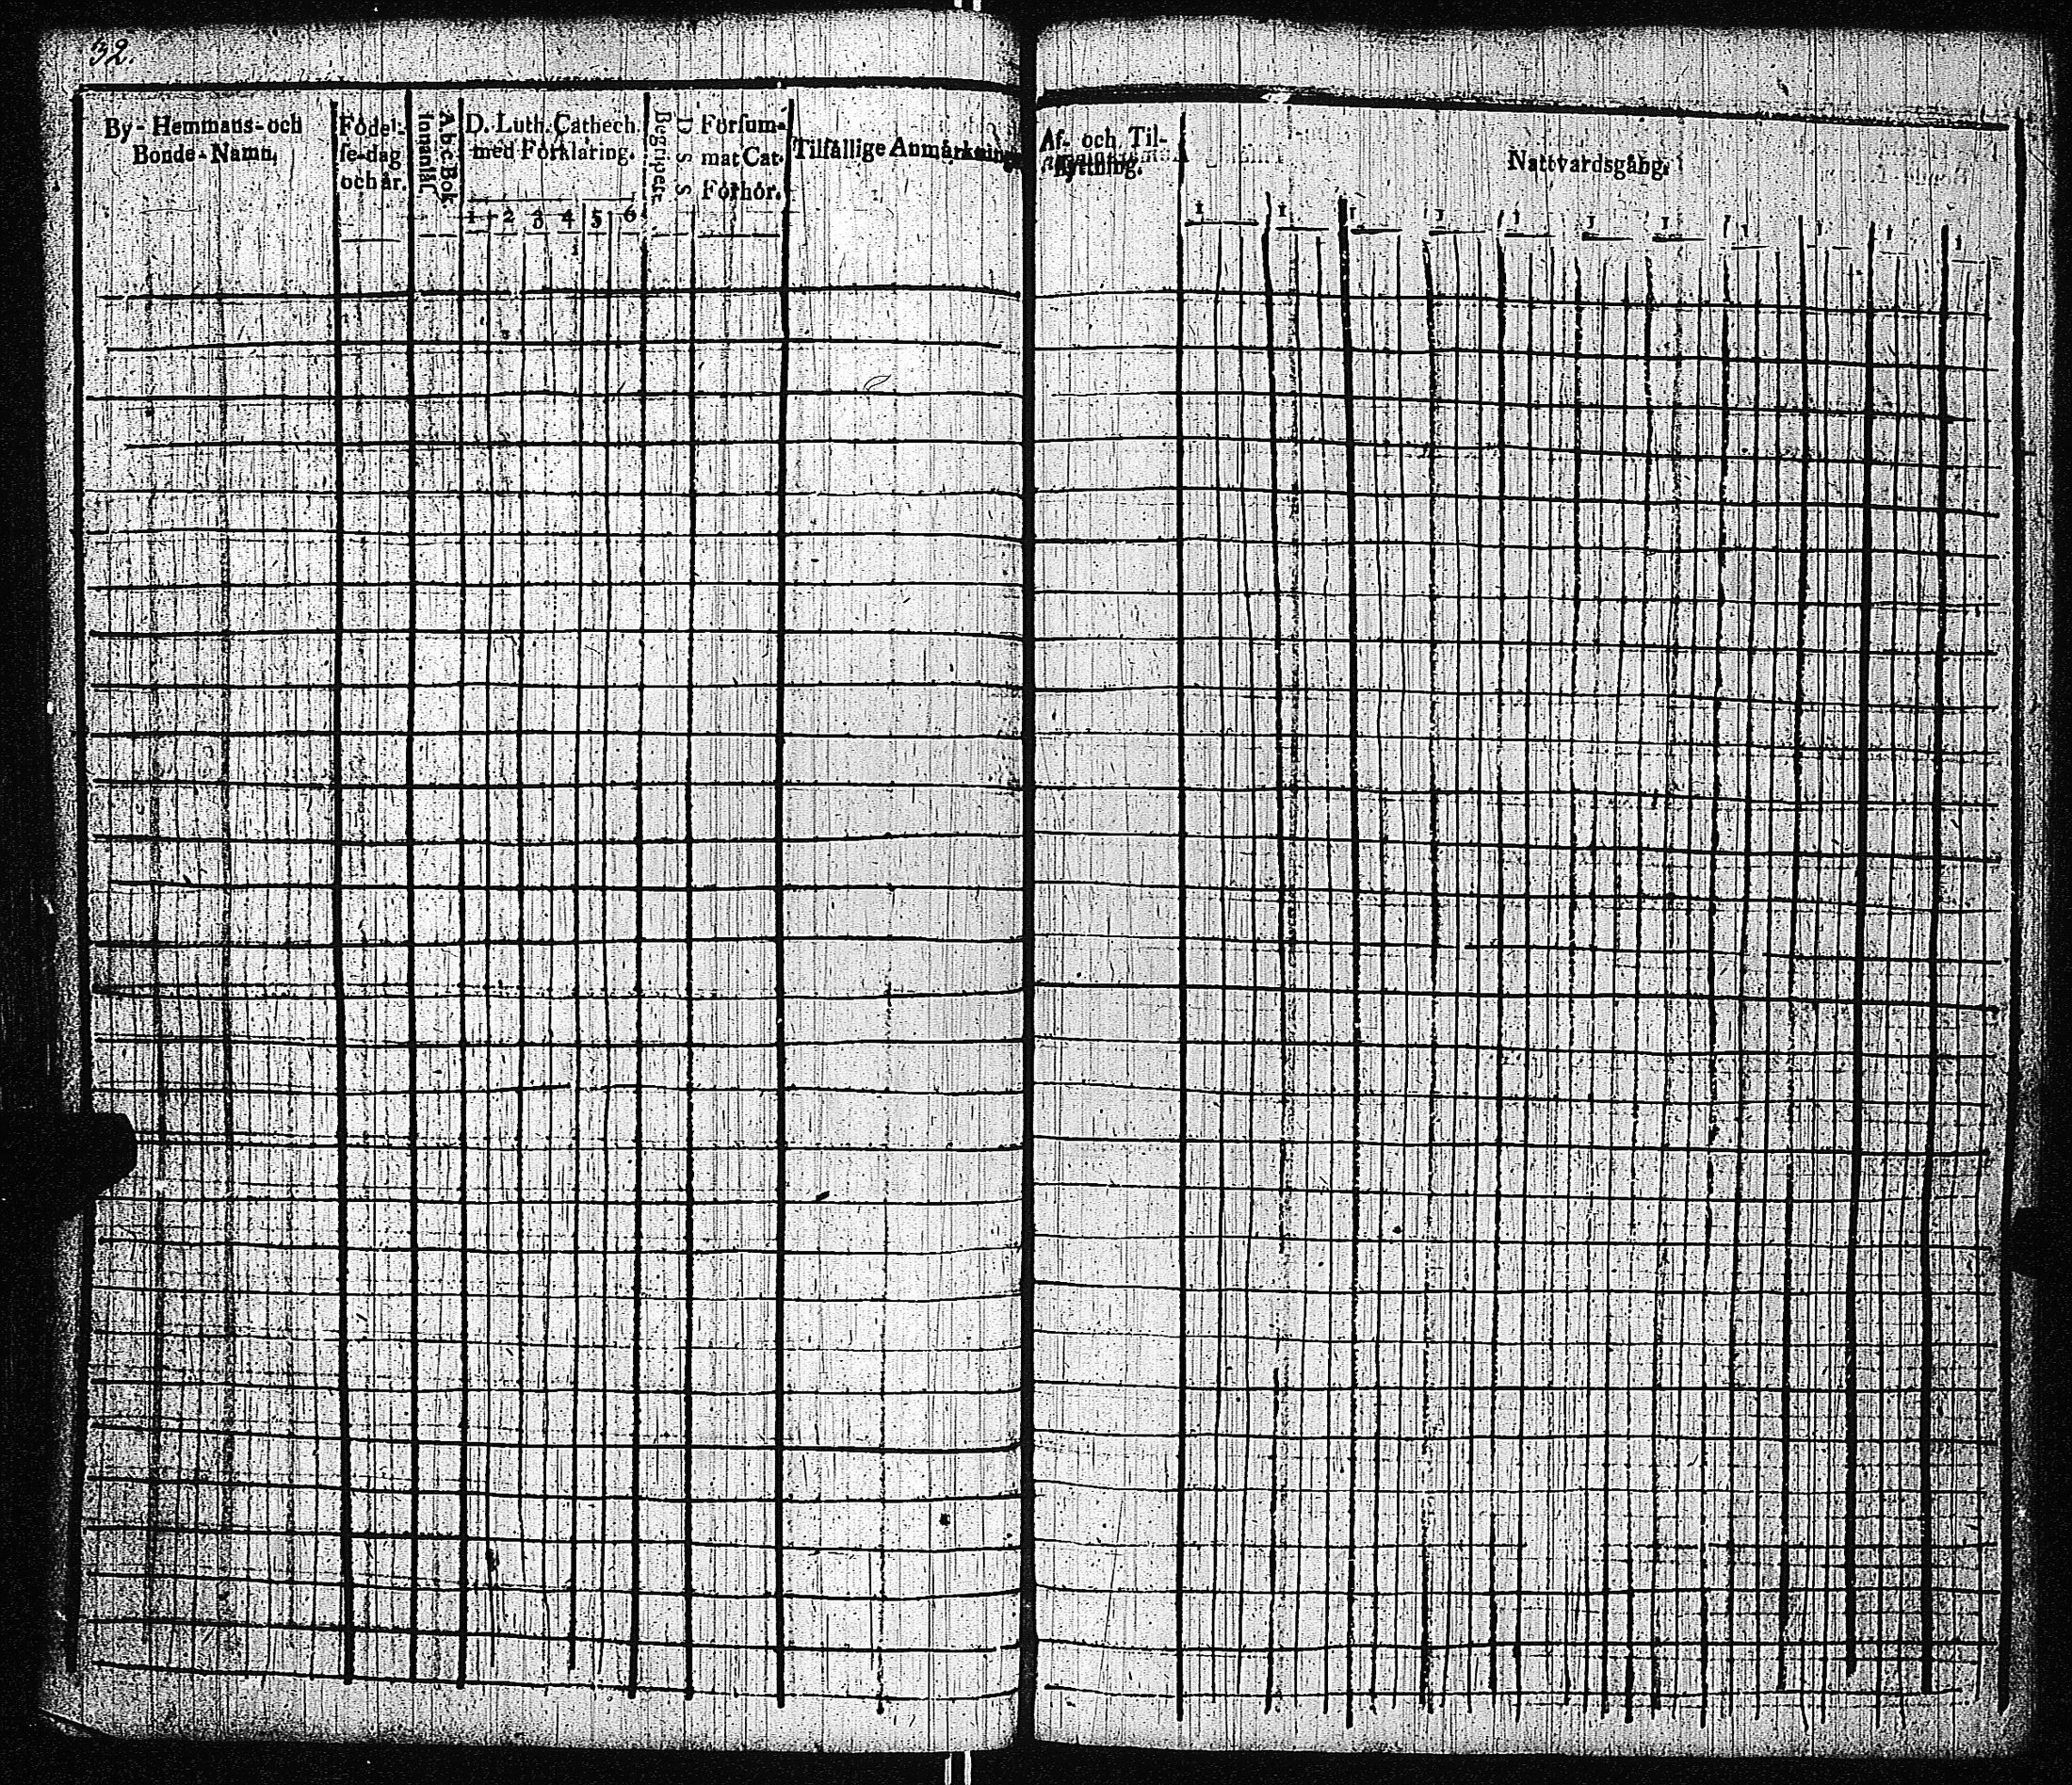 32.
By- Hemmans- och
Bonde-Namn,
Födel-
se-dag
och år.
A.b.c Bok
innanläs.
D. Luth. Cathech.
med Förklaring.
1 2 3 4 5 6
Begriper.
D S S
Försum-
mat Cat.
Förhör.
Tilfällige Anmärkning
Af- och Til-
flyttning.
Nattvardsgång.
1 1 1 1 1 1 1 1 1 1 1